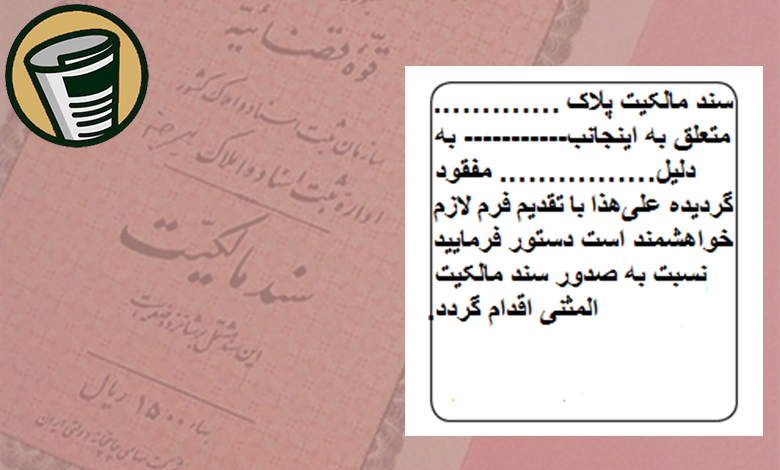 قوه قضائیه
سازمان ثبت اسناد و املاک کشور
اداره ثبت اسناد و املاک
سند مالکیت
این سند مشتمل بر شانزده صفحه است
بهاء ۱۵۰۰ ریال
سند مالکیت پلاک .............
متعلق به اینجانب----------- به
دلیل................ مفقود
گردیده علی‌هذا با تقدیم فرم لازم
خواهشمند است دستور فرمایید
نسبت به صدور سند مالکیت
المثنی اقدام گردد.